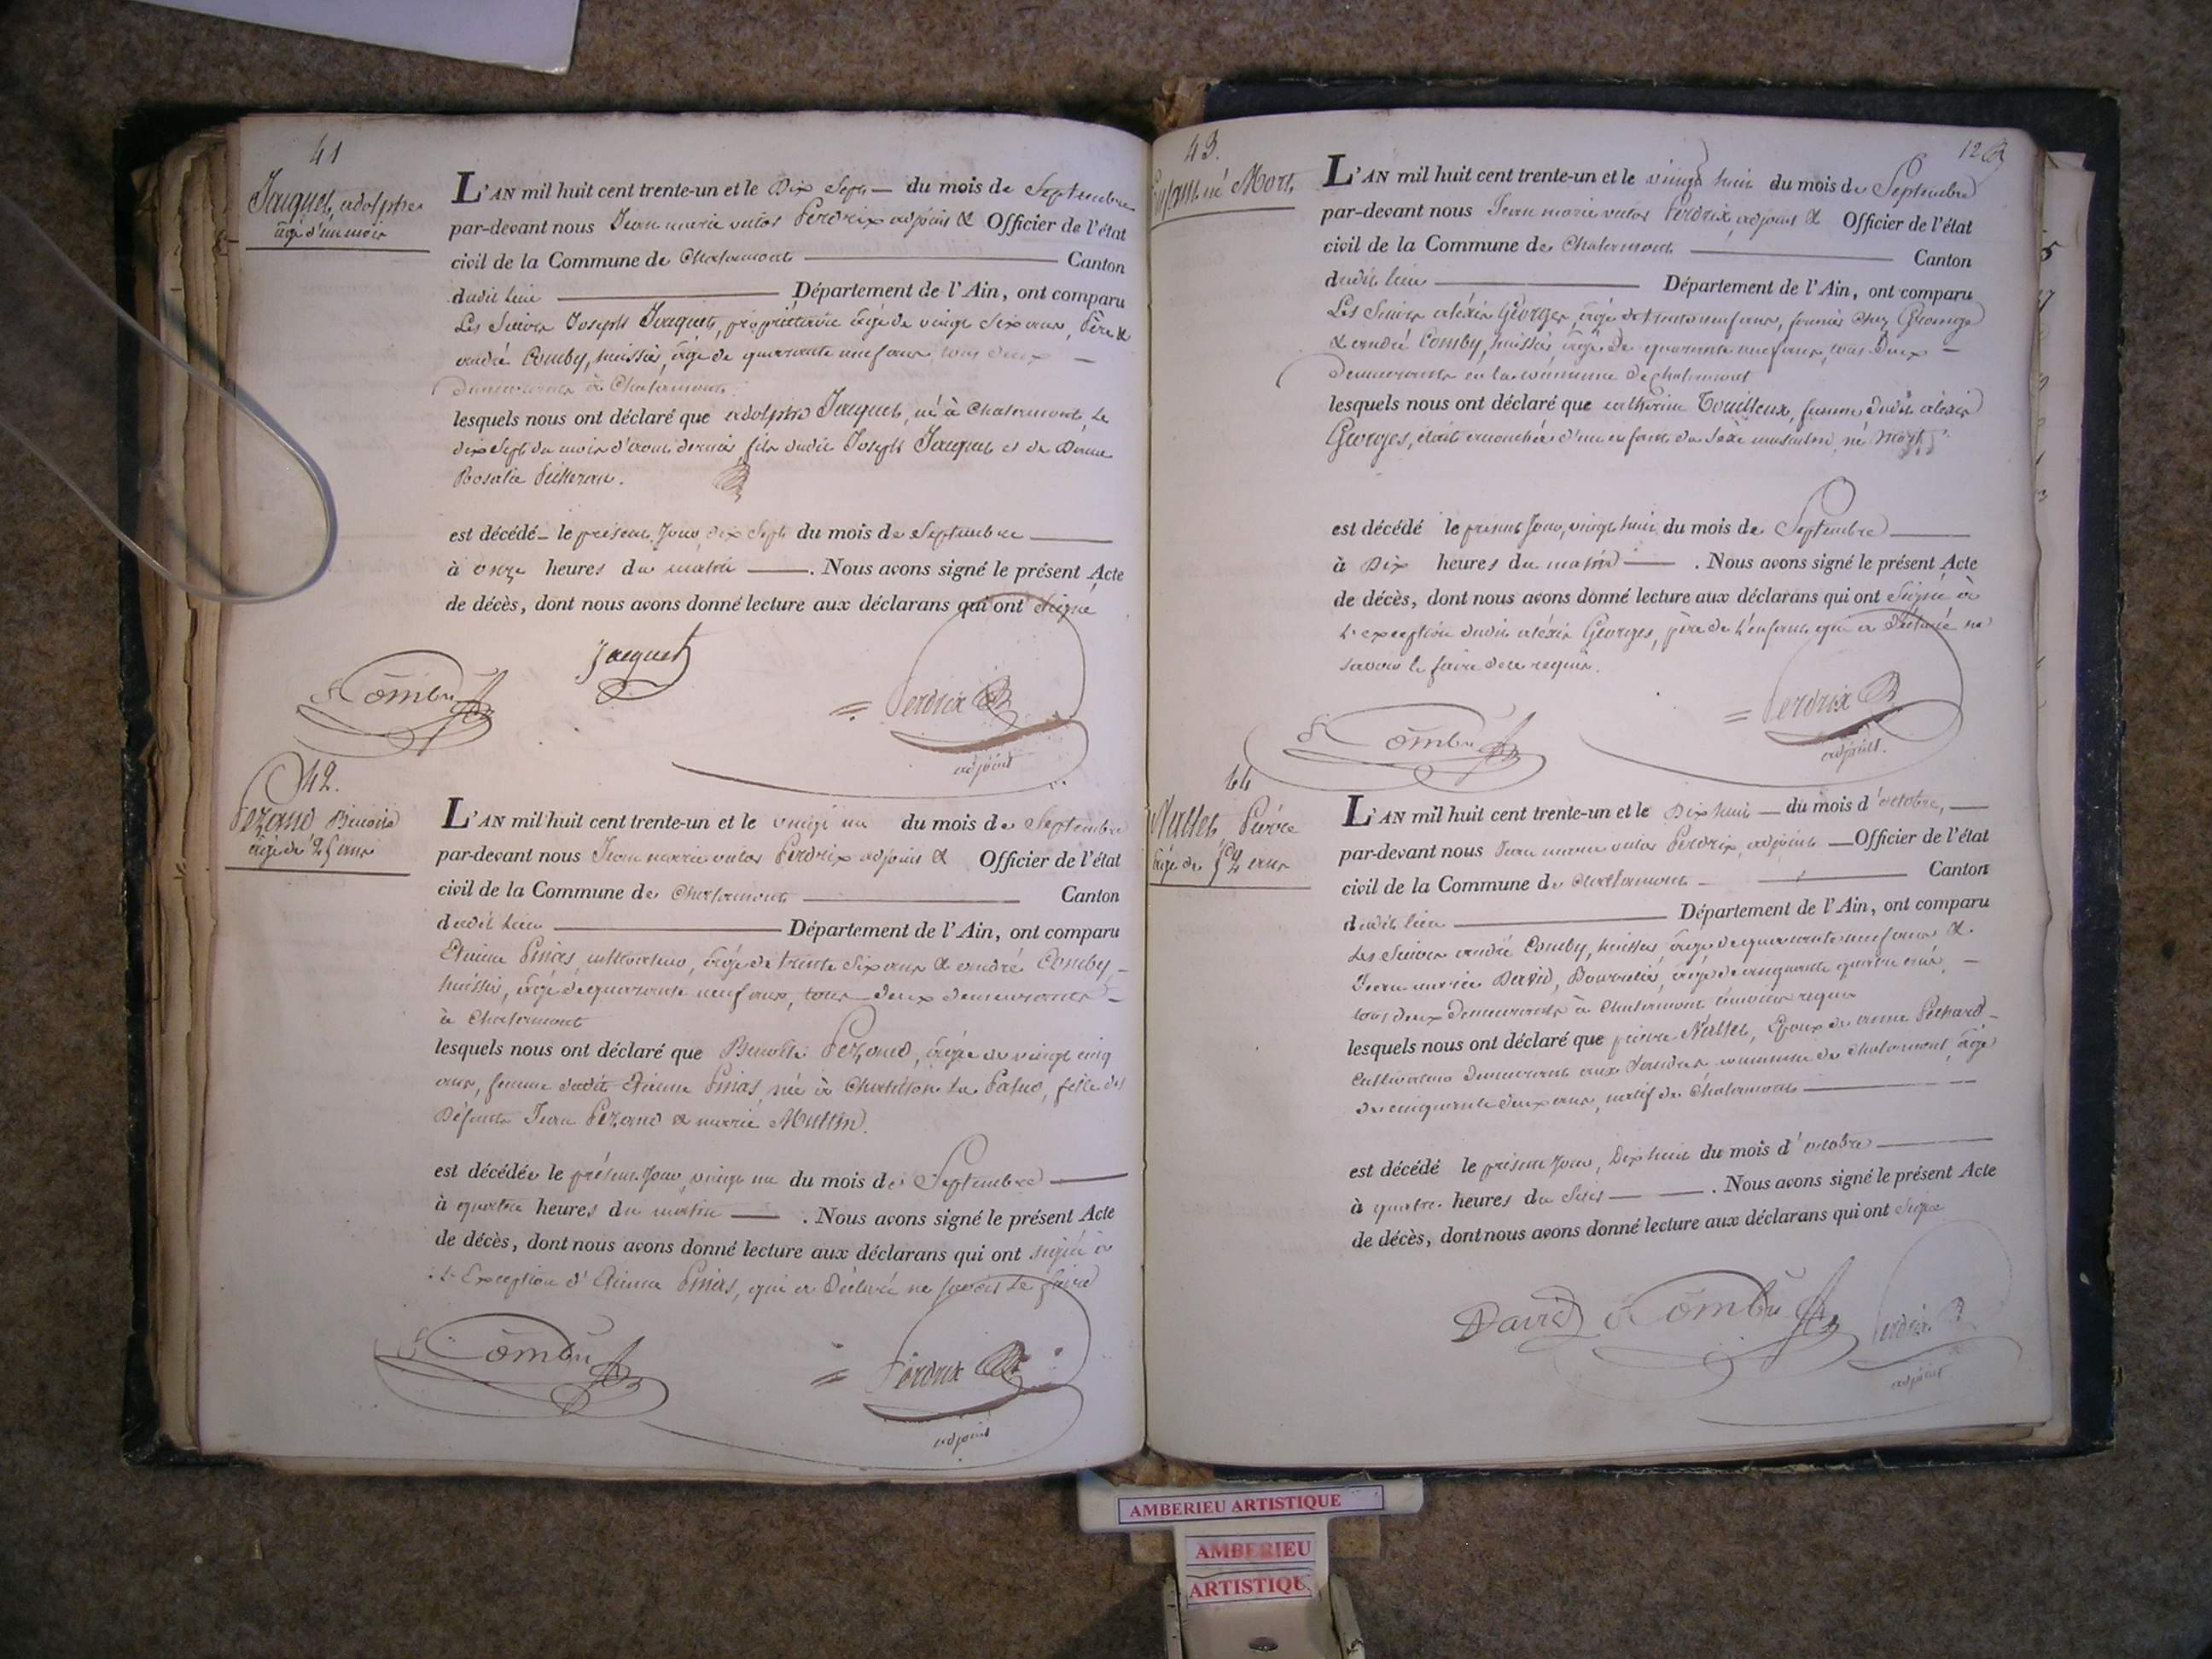 41
Jacquet, adolphe
âgé d'un mois
L'AN mil huit cent trente-un et le Dix Sept — du mois de Septembre
par-devant nous Jean marie Perdrix adjoint & Officier de l'état
civil de la Commune de Chalamont — Canton
dudit lieu — Département de l'Ain, ont comparu
Les Sieurs Joseph Jacquet, propriétaire âgé de vingt Six ans, Père &
andré Comby, huissier, âgé de quarante neuf ans, tous deux —
Demeurants à Chalamont
lesquels nous ont déclaré que adolphe Jacquet, né à Chalamont, le
dix Sept du mois d'août dernier, fils dudit Joseph Jacquet et de Dame
Rosalie
est décédé le présent Jour, dix Sept du mois de Septembre —
à onze heures du matin — . Nous avons signé le présent Acte
de décès, dont nous avons donné lecture aux déclarans qui ont Signé
Comby
Jacquet
Perdrix
adjoint
42.
Pezand Benoite
âgée de 25 ans
L'AN mil huit cent trente-un et le vingt un du mois de Septembre
par-devant nous Jean marie Perdrix adjoint & Officier de l'état
civil de la Commune de Chalamont — Canton
dudit lieu — Département de l'Ain, ont comparu
Etienne Pinias, cultivateur, âgé de trente Six ans & andré Comby, —
huissier, âgé de quarante neuf ans, tous deux demeurants —
à Chalamont
lesquels nous ont déclaré que Benoite Pezand, âgée de vingt cinq
ans, femme dudit Etienne Pinias, née à Chatillon La Palud, fille des
Défunts Jean Pezand & marie
est décédée le présent Jour, vingt un du mois de Septembre —
à quatre heures du matin — . Nous avons signé le présent Acte
de décès, dont nous avons donné lecture aux déclarans qui ont signé à
L'Exception d'Etienne Pinias, qui a Déclaré ne savoir le faire
Comby
Perdrix
adjoint
43.
12
Enfant né Mort
L'AN mil huit cent trente-un et le vingt huit du mois de Septembre
par-devant nous Jean marie Perdrix, adjoint & Officier de l'état
civil de la Commune de Chalamont — Canton
dudit lieu — Département de l'Ain, ont comparu
Les Sieurs aléxis Georges, âgé de trente neuf ans, fermier Chez
& andré Comby, huissier, âgé de quarante neuf ans, tous Deux —
Demeurants en la commune de Chalamont
lesquels nous ont déclaré que catherine Touilleux, femme dudit aléxis
Georges, était accouchée d'un enfant du Sexe masculin, né mort
est décédé le présent Jour, vingt huit du mois de Septembre —
à Dix heures du matin — . Nous avons signé le présent Acte
de décès, dont nous avons donné lecture aux déclarans qui ont Signé à
L'exception dudit aléxis Georges, père de L'enfant qui a Déclaré ne
savoir le faire de ce requis.
Comby
Perdrix
adjoint.
44
Nallet, Pierre
âgé de 52 ans
L'AN mil huit cent trente-un et le Dix huit — du mois d'octobre, —
par-devant nous Jean marie Perdrix, adjoint — Officier de l'état
civil de la Commune de Chalamont — Canton
dudit lieu — Département de l'Ain, ont comparu
Les Sieurs andré Comby, huissier, âgé de quarante neuf ans &
Jean marie David, Bourrelier, âgé de cinquante quatre ans, —
tous deux Demeurants à Chalamont témoins requis
lesquels nous ont déclaré que pierre Nallet, Epoux de anne Pechard —
Cultivateur demeurant aux commune de Chalamont, âgé
de cinquante deux ans, natif de Chalamont —
est décédé le présent Jour, Dix huit du mois d'octobre —
à quatre heures du Soir — . Nous avons signé le présent Acte
de décès, dont nous avons donné lecture aux déclarans qui ont signé
David Comby Perdrix
adjoint
AMBERIEU ARTISTIQUE
AMBERIEU
ARTISTIQU